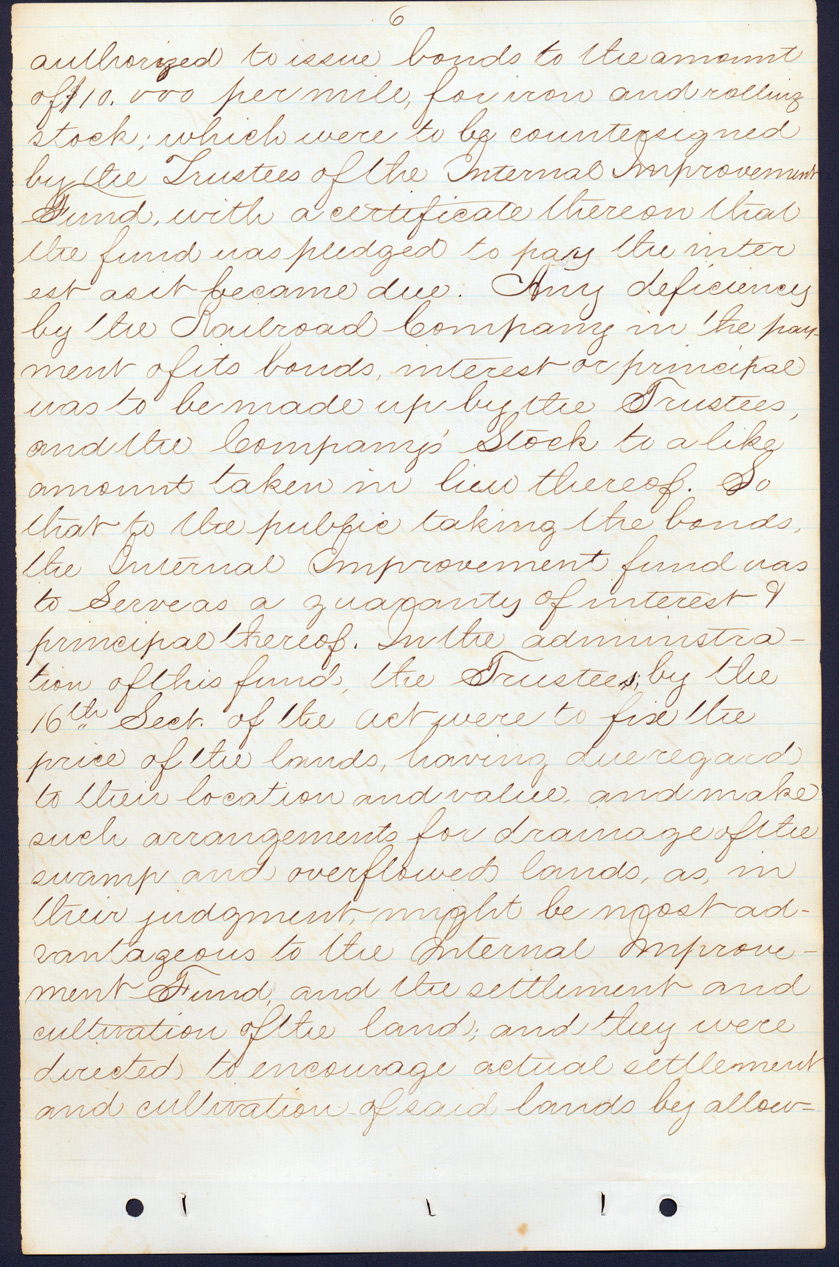 6
authorized to issue bonds to the amount
of $10.000 per mile, for iron and rolling
stock; which were to be countersigned
by the Trustees of the Internal Improvement
Fund, with a certificate thereon that
the fund was pledged to pay the inter
est as it became due. Any deficiency
by the Railroad Company in the pay-
ment of its bonds, interest or principal
was to be made up by the Trustees,
and the Company's Stock to a like
amount taken in lieu thereof. So
that to the public taking the bonds,
the Internal Improvement fund was
to Serve as a guaranty of interest &
principal thereof. In the adminstra-
tion of this fund, the Trustees, by the
16th Sect. of the act were to fix the
price of the lands, having due regard
to their location and value, and make
such arrangements for drainage of the
swamp and overflowed lands, as, in
their judgment, might be most ad-
vantageous to the Internal Improve-
ment Fund, and the settlement and
cultivation of the land; and they were
directed to encourage actual settlement
and cultivation of said lands by allow-